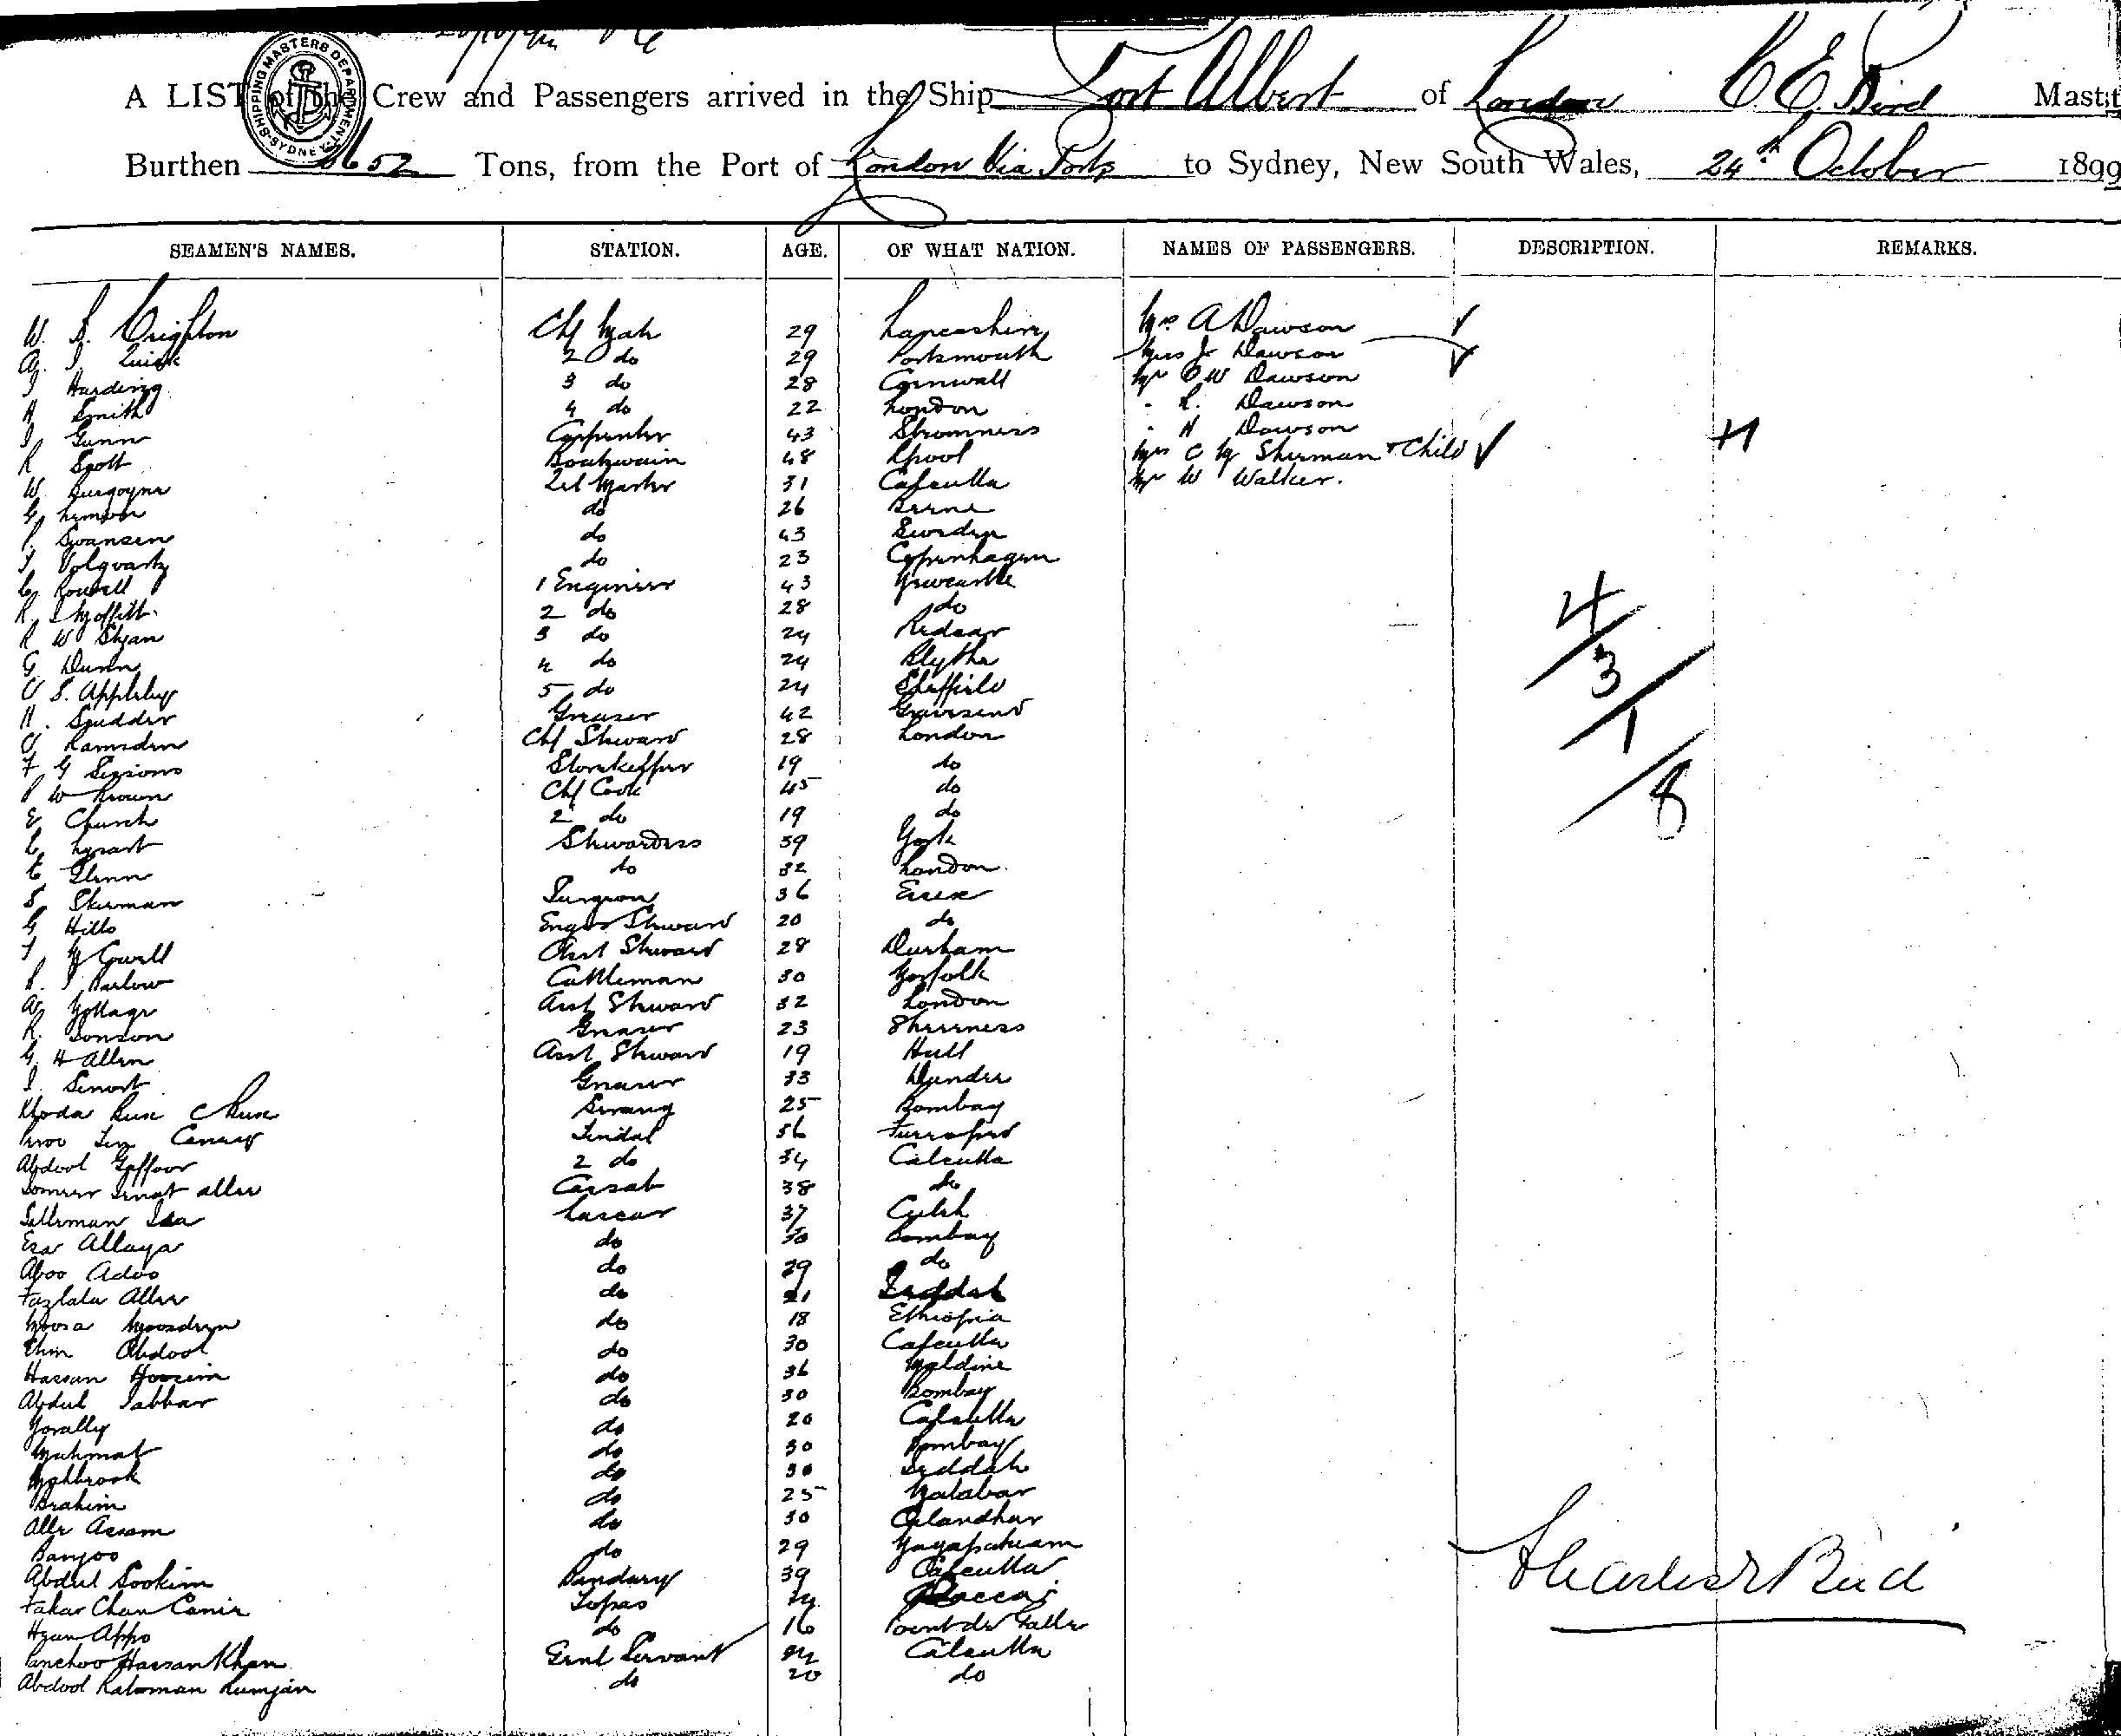 A LIST of the Crew and Passengers arrived in the Ship Port Albert of London C. E. Bird Master
Burthen Tons, from the Port of London Via Ports to Sydney, New South Wales, 24th October 1899
SHIPPING MASTERS DEPARTMENT SYDNEY
SEAMEN'S NAMES. STATION. AGE. OF WHAT NATION. NAMES OF PASSENGERS. DESCRIPTION. REMARKS.
W. S. Crighton Chf Mate 29 Lancashire Mrs A Dawson
2 do 29 Portsmouth Dawson
J Harding 3 do 28 Cornwall Mr C W Dawson
H Smith 4 do 22 London " R. Dawson
J Gunn Carpenter 43 Stromness " H Dawson
R Scott Boatswain 48 Lpool Mrs C M Sherman & Child
W Burgoyne Qrt Master 31 Calcutta Mr W Walker.
do 26 Berne
P. Swansen do 43 Sweden
J Volquartz do 23 Copenhagen
C Rowell 1 Engineer 43 Newcastle
R. J Moffitt 2 do 28 do
R W Styan 3 do 24 Redcar
G Dunn 4 do 24 Blythe
C S. Appleby 5 do 24 Sheffield
H. Scudder Greaser 42 Gravesend
C Ramsden Chf Steward 28 London
F G Sessions Storekeeper 19 do
P W Brown Chf Cook 45 do
E Church 2 do 19 do
Stewardess 39 York
E Glenn do 32 London
S Sherman Surgeon 36 Essex
G Hills Engrs Steward 20 do
J McGowell Asst Steward 28 Durham
S. J Barlow Cattleman 30 Norfolk
Asst Steward 32 London
R. Sonson Greaser 23 Sheerness
G H Allen Asst Steward 19 Hull
J. Greaser 33 Dundee
Khoda Bux C Bux Serang 25 Bombay
Tindal 56
Abdool Gaffoor 2 do 34 Calcutta
Cassab 38 do
Sulleman Isa Lascar 37 Cutch
Esa Allaya do 30 Bombay
Aboo Adoo do 29 do
Fazlala Allee do 21 Jeddah
Moosa Moosdeen do 18 Ethiopia
Abdool do 30 Calcutta
Hassan Hoosein do 36 Maldive
Abdul Jabbar do 30 Bombay
Norally do 20 Calcutta
Mahmat do 30 Bombay
Mahbrook do 30 Jeddah
Brahim do 25 Malabar
Alle Assam do 30
Banjoo do 29
Abdul Sookim Bandary 39 Calcutta
Fakar Chan Canir Topas
Hyan Appo do 16 Point de Galle
Panchoo Hassan Khan Genl Servant Calcutta
Abdool Rahoman Rumjan do 20 do
4
3
1
8
Charles E Bird